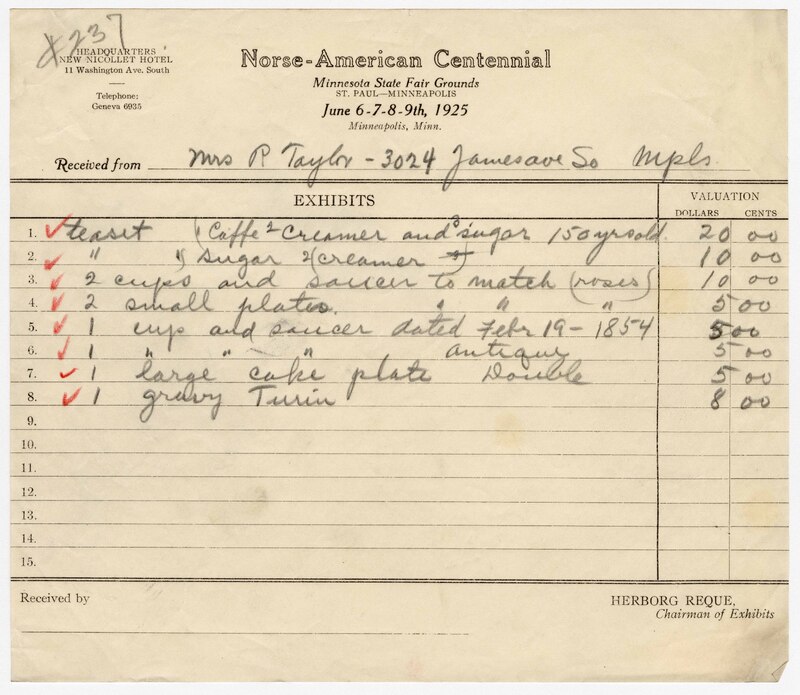 X237
HEADQUARTERS
NEW NICOLLET HOTEL
11 Washington Ave. South
Telephone:
Geneva 6935
Norse-American Centennial
Minnesota State Fair Grounds
ST. PAUL—MINNEAPOLIS
June 6-7-8-9th, 1925
Minneapolis, Minn.
Received from Mrs P. Taylor - 3024 James ave So Mpls.
EXHIBITS VALUATION
DOLLARS CENTS
1. teaset (Caffe 2 Creamer and 3 sugar 150 yrs old. 20 00
2. " " Sugar 2 (creamer 10 00
3. 2 cups and saucer to match (roses) 10 00
4. 2 small plates. " " " 5 00
5. 1 cup and saucer dated Febr 19 - 1854 5 00
6. 1 " " " antique 5 00
7. 1 large cake plate Double 5 00
8. 1 gravy Turin 8 00
9.
10.
11.
12.
13.
14.
15.
Received by
HERBORG REQUE,
Chairman of Exhibits